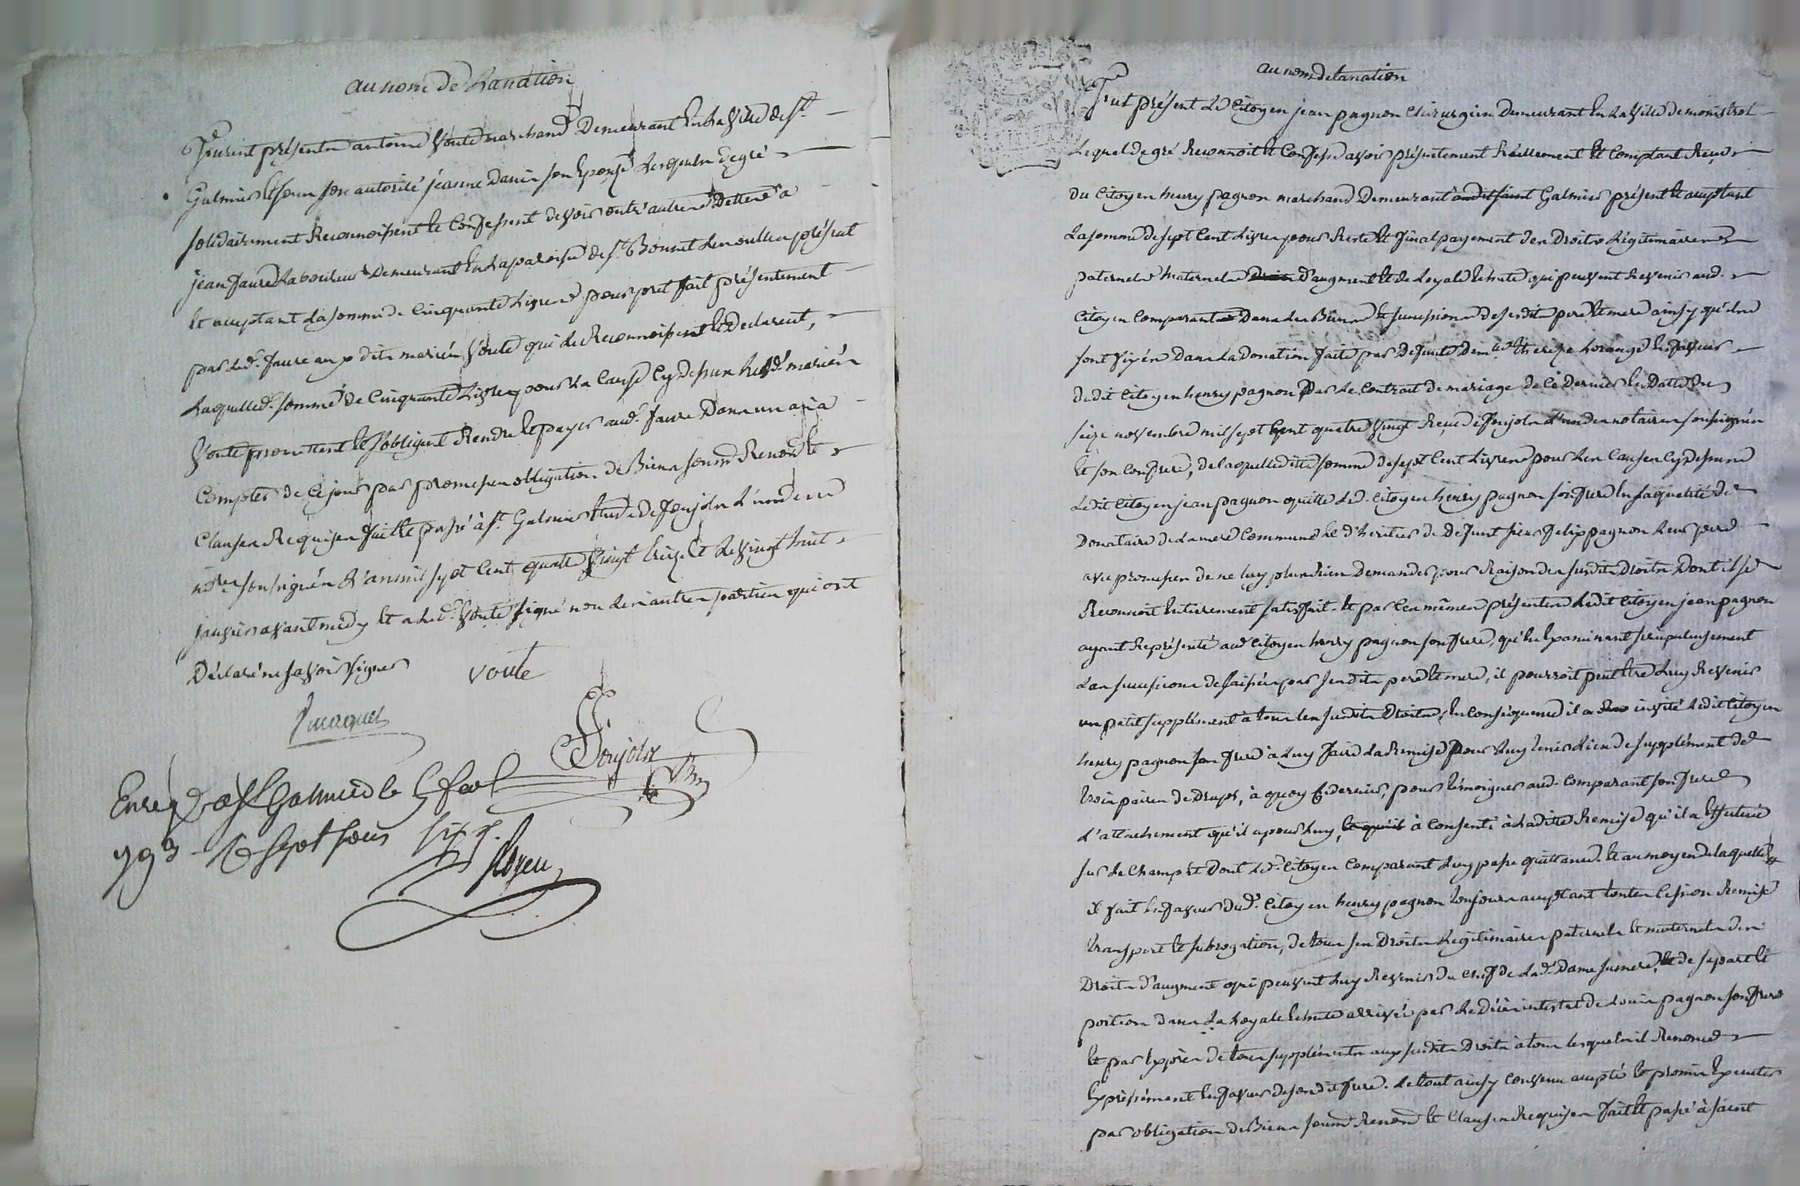 au nom de La nation
Furent présents antoine Voute marchand Demeurant En La Ville de St
Galmier & sous son autorité jeanne Danis son Epouse Lesquels de gré
solidairement Reconnoissent & Confessent devoir entr'autres Dettes a
jean faure Laboureur Demeurant En La paroisse de St Bonnet Les oulles présent
Et acceptant La somme de Cinquante Livres pour pret fait présentement
par Led. faure aux dits mariés Voute qui Le Reconnoissent & Declarent,
Laquelle d. somme de Cinquante Livres pour La Cause Cy dessus Les d. mariés
Voute promettent & s'obligent Rendre & payer aud. faure Dans un an a
Compter de Ce jour par promesses obligation de Biens soumis Renonce &
Clauses Requises fait & passé à St Galmier Etude de Ponjols L'un des
nores soussignés L'an mil sept Cent quatre Vingt treize & Le Vingt huit
janvier avant midy Et a Led. Voute signé non Les autres parties qui ont
Déclaré ne savoir signer
Voute
Jacquet
Ponjols
Enreg. a St Galmier le 5 fev
793 R Sept sous six d.
au nom de La nation
Fut présent Le Citoyen jean pagnon Chirurgien Demeurant En La Ville de monistrol
Lequel de gré Reconnoit & Confesse avoir présentement Réellement & Comptant Reçu
du Citoyen henry pagnon marchand Demeurant audit saint Galmier présent & acceptant
La somme de sept Cent Livres pour Reste & final payement des Droits Légitimaires
paternels maternels Droits d'augment & de Loyale Echute qui peuvent Revenir aud.
Citoyen Comparant Dans Les Biens & successions de ses dits pere & mere ainsy qu'ils
sont fixés Dans La Donation faite par Defunte Dem.lle therese Lorange En faveur
dudit Citoyen henry pagnon par Le Contrat de mariage de Ce Dernier En Datte du
seize novembre mil sept Cent quatre Vingt Reçu de Ponjols L'un des notaires soussignés
& son Confrere, de laquelle dite somme de sept Cent Livres pour Les Causes Cy dessus
Ledit Citoyen jean pagnon quitte Led. Citoyen henry pagnon son frere En sa qualité de
Donataire de La mere Commune & d'heritier de Defunt sieur felix pagnon Leur pere
avec promesses de ne luy plus Rien Demander pour Raison des susdits Droits Dont il se
Reconnoit Entierement satisfait. Et par Ces mêmes présentes Ledit Citoyen jean pagnon
ayant Représenté aud. Citoyen henry pagnon son frere, qu'En Examinant scrupuleusement
Les successions delaissées par ses dits pere & mere, il pourroit peut Etre Luy Revenir
un petit supplément à tous les susdits Droits, En Conséquence il a invité Ledit Citoyen
henry pagnon son frere à Luy faire La Remise pour Luy tenir Lieu de supplément de
trois paires de Draps, à quoy Ce dernier, pour témoigner aud. Comparant son frere
L'attachement qu'il a pour Luy, à Consenti à Ladite Remise qu'il a Effectuée
sur Le Champ & Dont Led. Citoyen Comparant Luy passe quittance. Et au moyen de laquelle
il fait En faveur dud. Citoyen henry pagnon toujours acceptant toutes Cession Remise
transport & subrogation, de tous ses Droits Légitimaires paternels & maternels des
Droits d'augment qui peuvent Luy Revenir du Chef de Lad. Dame sa mere, & de sa part &
portion dans La Loyale Echute arrivée par Le Décès intestat de Louis pagnon son frere
Et par Exprès de tous suppléments aux susdits Droits à tous Lesquels il Renonce
Expressément En faveur de son dit frere. Le tout ainsy Convenu accepté & promis Executer
par obligation de Biens soumis Renonce & Clauses Requises fait & passé à saint